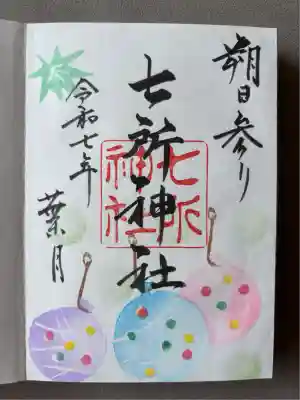 朔日参り
七所神社
七所
神社
令和七年
葉月